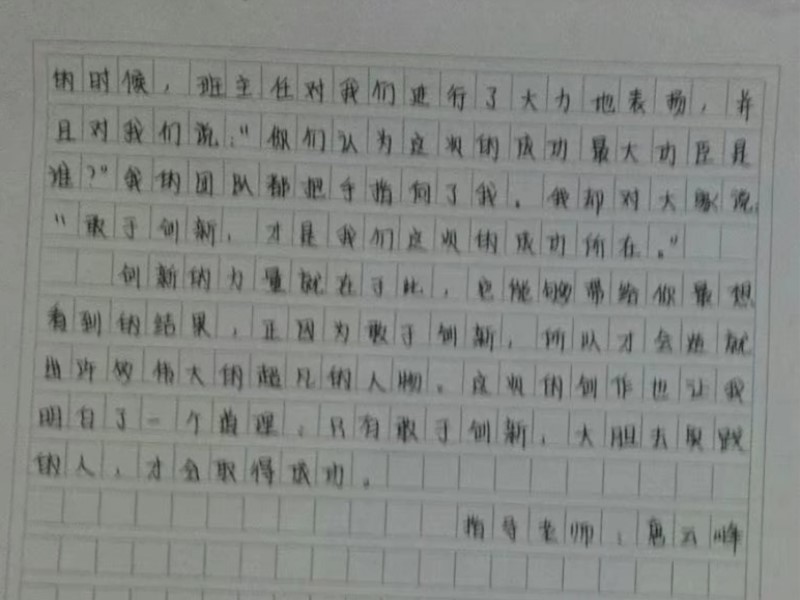 的时候，班主任对我们进行了大力地表扬，并
且对我们说：“你们认为这次的成功最大功臣是
谁？”我的团队都把手指向了我。我却对大家说：
“敢于创新，才是我们这次的成功所在。”
创新的力量就在于此，它能够带给你最想
看到的结果，正因为敢于创新，所以才会造就
出许多伟大的超凡的人物。这次的创作也让我
明白了一个道理：只有敢于创新，大胆去实践
的人，才会取得成功。
指导老师：唐云峰